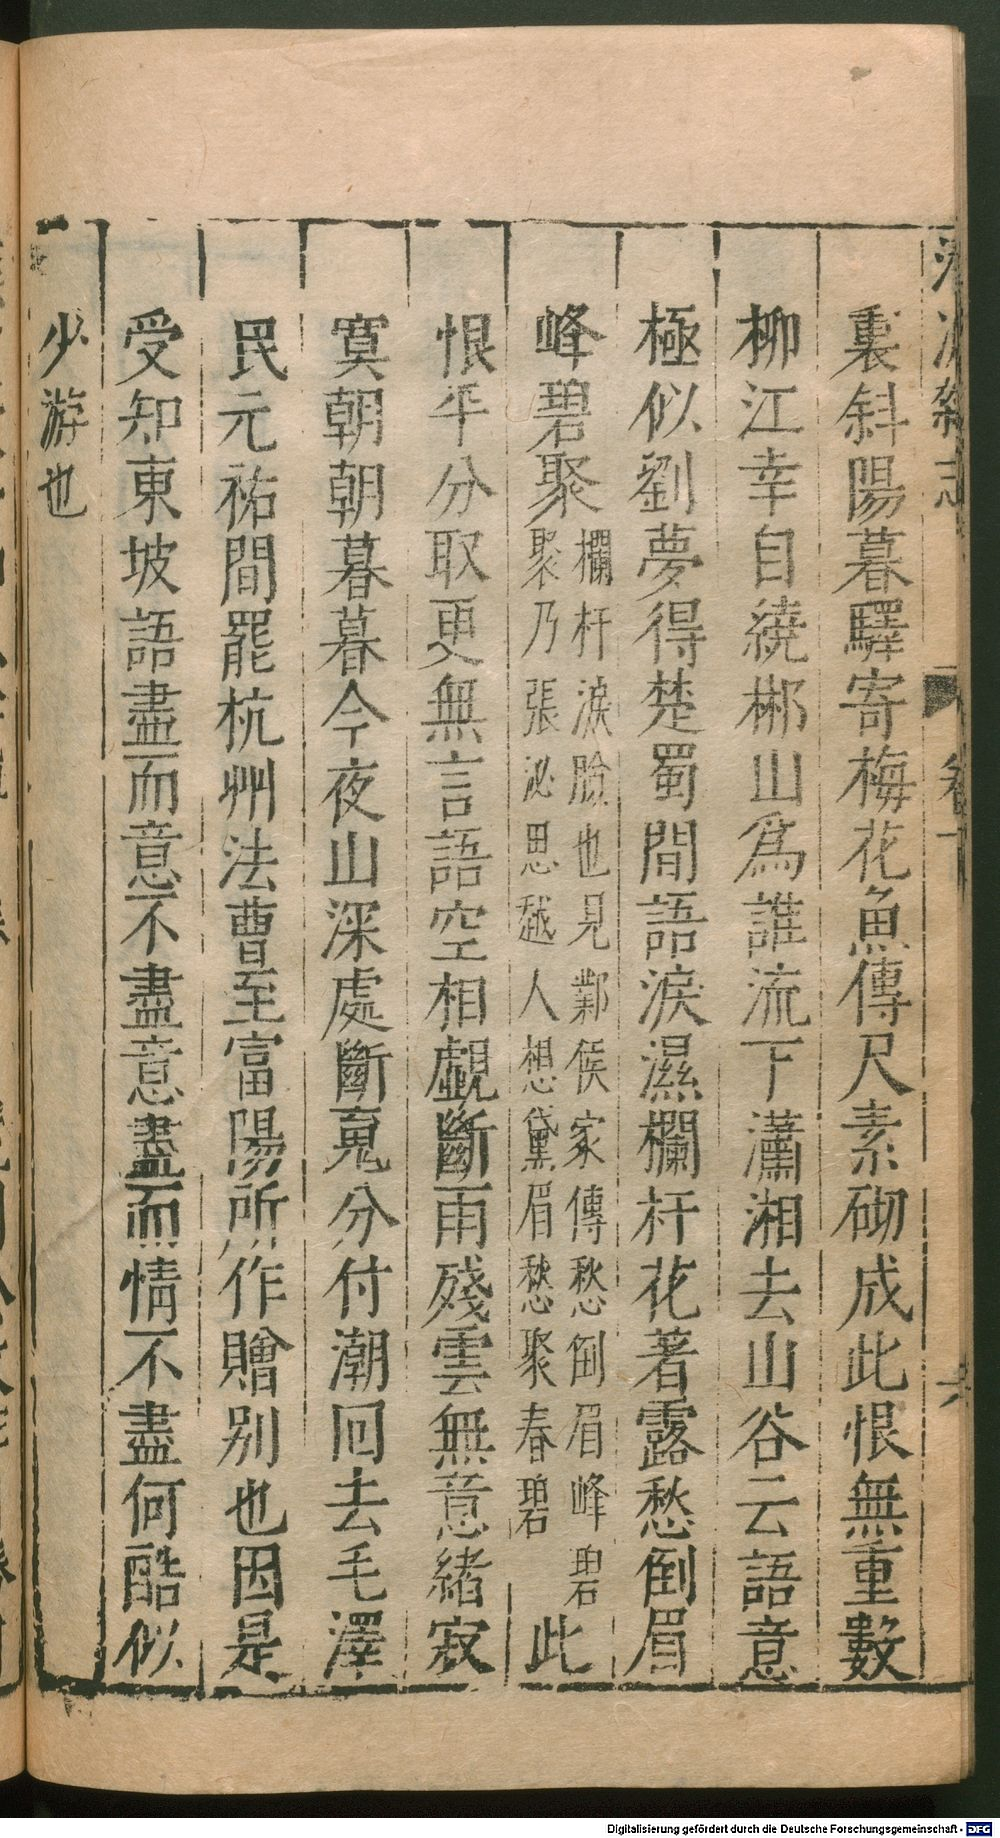 裏斜陽暮驛寄梅花魚傳尺素砌成此恨無重數
柳江幸自繞郴山爲誰流下瀟湘去山谷云語意
極似劉夢得楚蜀間語淚濕欄杆花著露愁倒眉
峰碧聚
欄杆淚臉也見鄴侯家傳愁倒眉峰碧
聚乃張泌思越人想黛眉愁聚春碧
此
恨平分取更無言語空相覷斷雨殘雲無意緒寂
寞朝朝暮暮今夜山深處斷䰟分付潮囘去毛澤
民元祐間罷杭州法曹至富陽所作贈別也因是
受知東坡語盡而意不盡意盡而情不盡何酷似
少游也
Digitalisierung gefördert durch die Deutsche Forschungsgemeinschaft - DFG